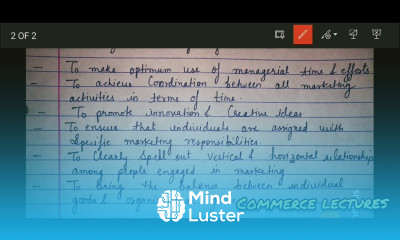 2 OF 2
- To make optimum use of managerial time & efforts
- To achieve Coordination between all marketing
activities in terms of time.
- To promote innovation & Creative Ideas
- To ensure that individuals are assigned with
Specific marketing responsibilities.
- To Clearly Spell out vertical & horizontal relationships
among people engaged in marketing
- To Bring the balance between individual
goals &
Mind
Luster
COMMERCE LECTURES